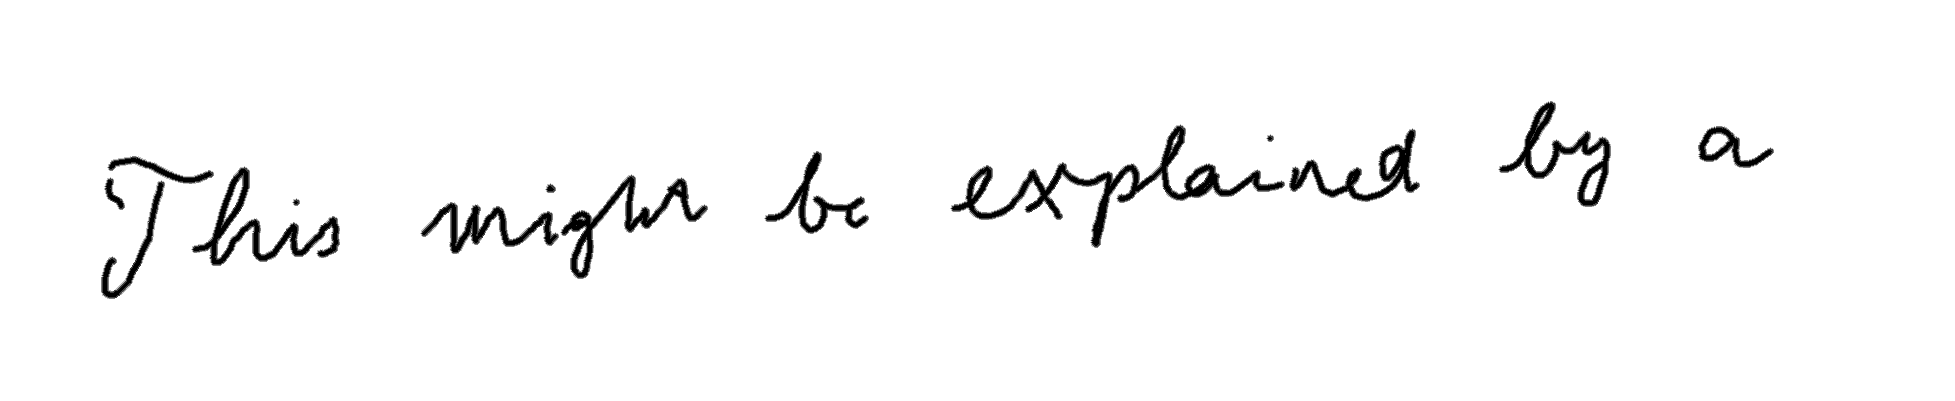 This might be explained by a